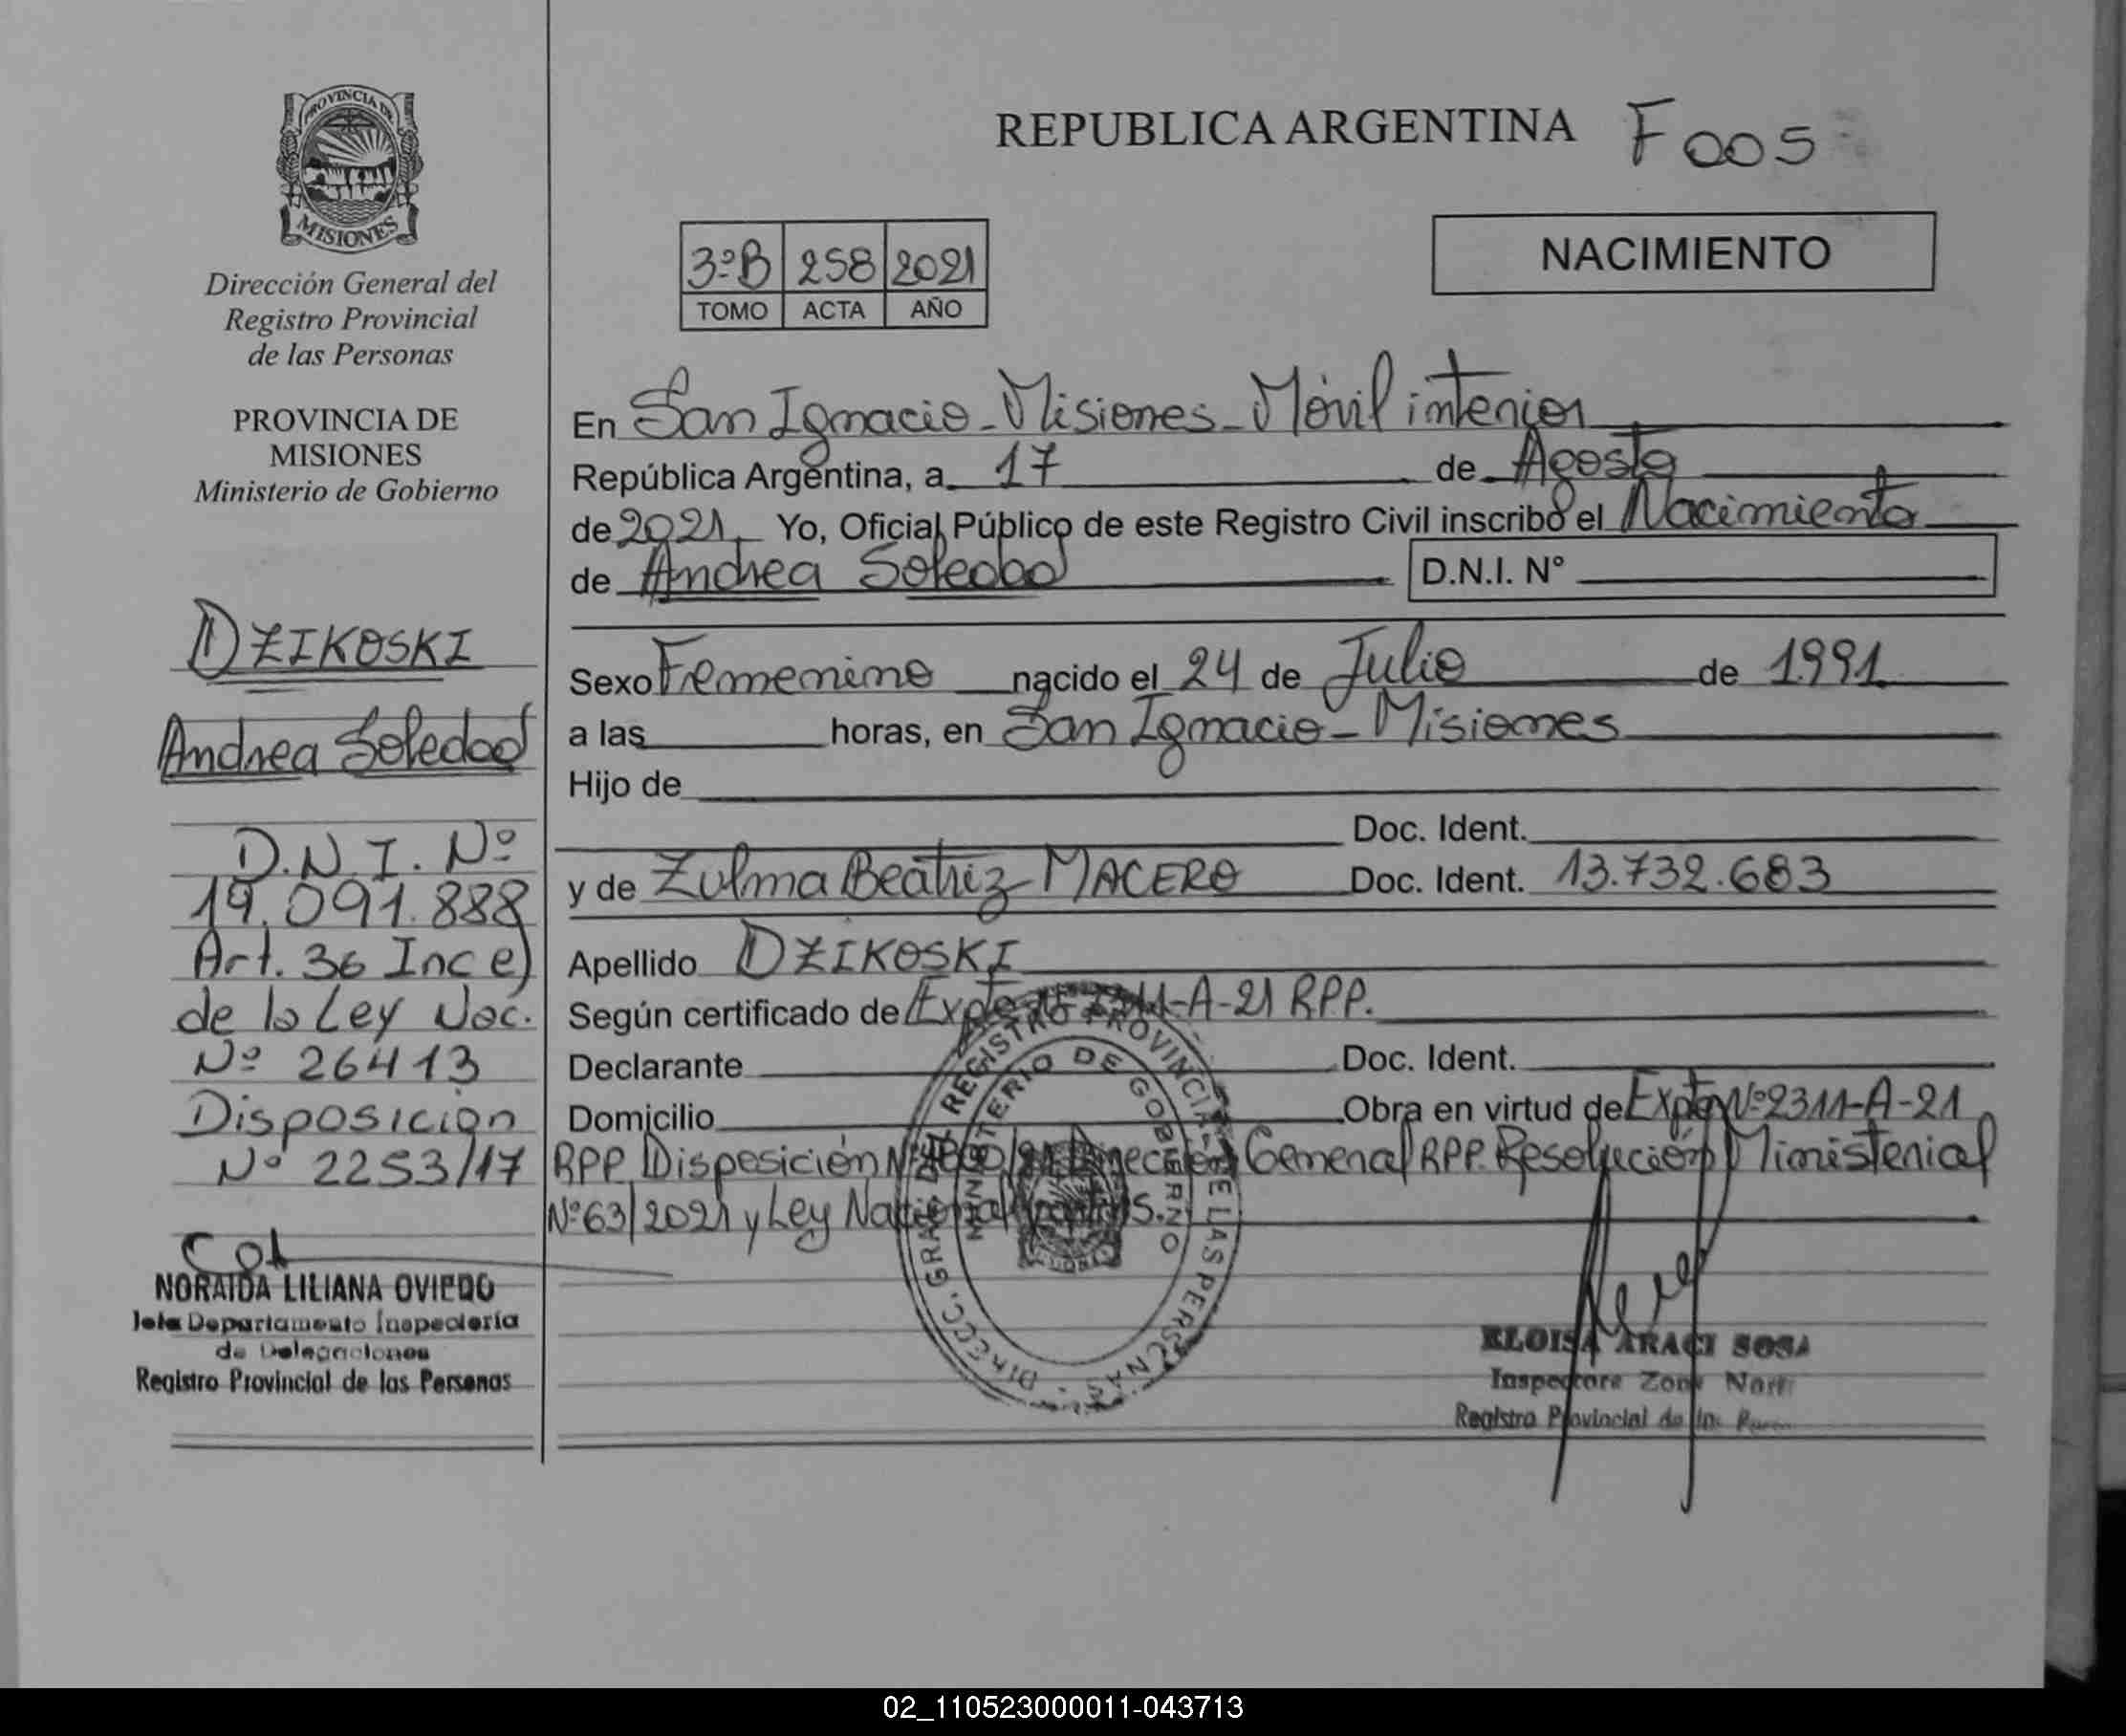 PROVINCIA DE
MISIONES
Dirección General del
Registro Provincial
de las Personas
PROVINCIA DE
MISIONES
Ministerio de Gobierno
DZIKOSKI
Andrea Soledad
D.N.I. Nº
19.091.888
Art. 36 Inc e)
de la Ley Nac.
Nº 26413
Disposición
Nº 2253/17
NORAIDA LILIANA OVIEDO
Jefa Departamento Inspectoría
de Delegaciones
Registro Provincial de las Personas
REPUBLICA ARGENTINA F005
3ºB 258 2021
TOMO ACTA AÑO
NACIMIENTO
En San Ignacio - Misiones - Móvil interior
República Argentina, a 17 de Agosto
de 2021 Yo, Oficial Público de este Registro Civil inscribo el Nacimiento
de Andrea Soledad D.N.I. N°
Sexo Femenino nacido el 24 de Julio de 1991
a las horas, en San Ignacio - Misiones
Hijo de
Doc. Ident.
y de Zulma Beatriz MACERO Doc. Ident. 13.732.683
Apellido DZIKOSKI
Según certificado de Expte -A-21 RPP.
Declarante Doc. Ident.
Domicilio Obra en virtud de Expte Nº2311-A-21
RPP Disposición Dirección General RPP. Resolución Ministerial
Nº63/2021 y Ley Nacional
DIRECC. GRAL. DEL REGISTRO PROVINCIAL DE LAS PERSONAS
MINISTERIO DE GOBIERNO
ELOISA ARACI SOSA
Inspectora Zona Norte
Registro Provincial de las
02_110523000011-043713